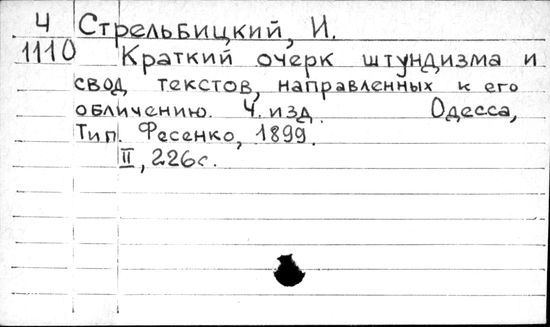 Ч Стрельбицкий, И.
1110 Краткий очерк штундизма и
свод текстов, направленных к его
обличению. 4. изд. Одесса,
Тип. Фесенко, 1899.
II, 226с.